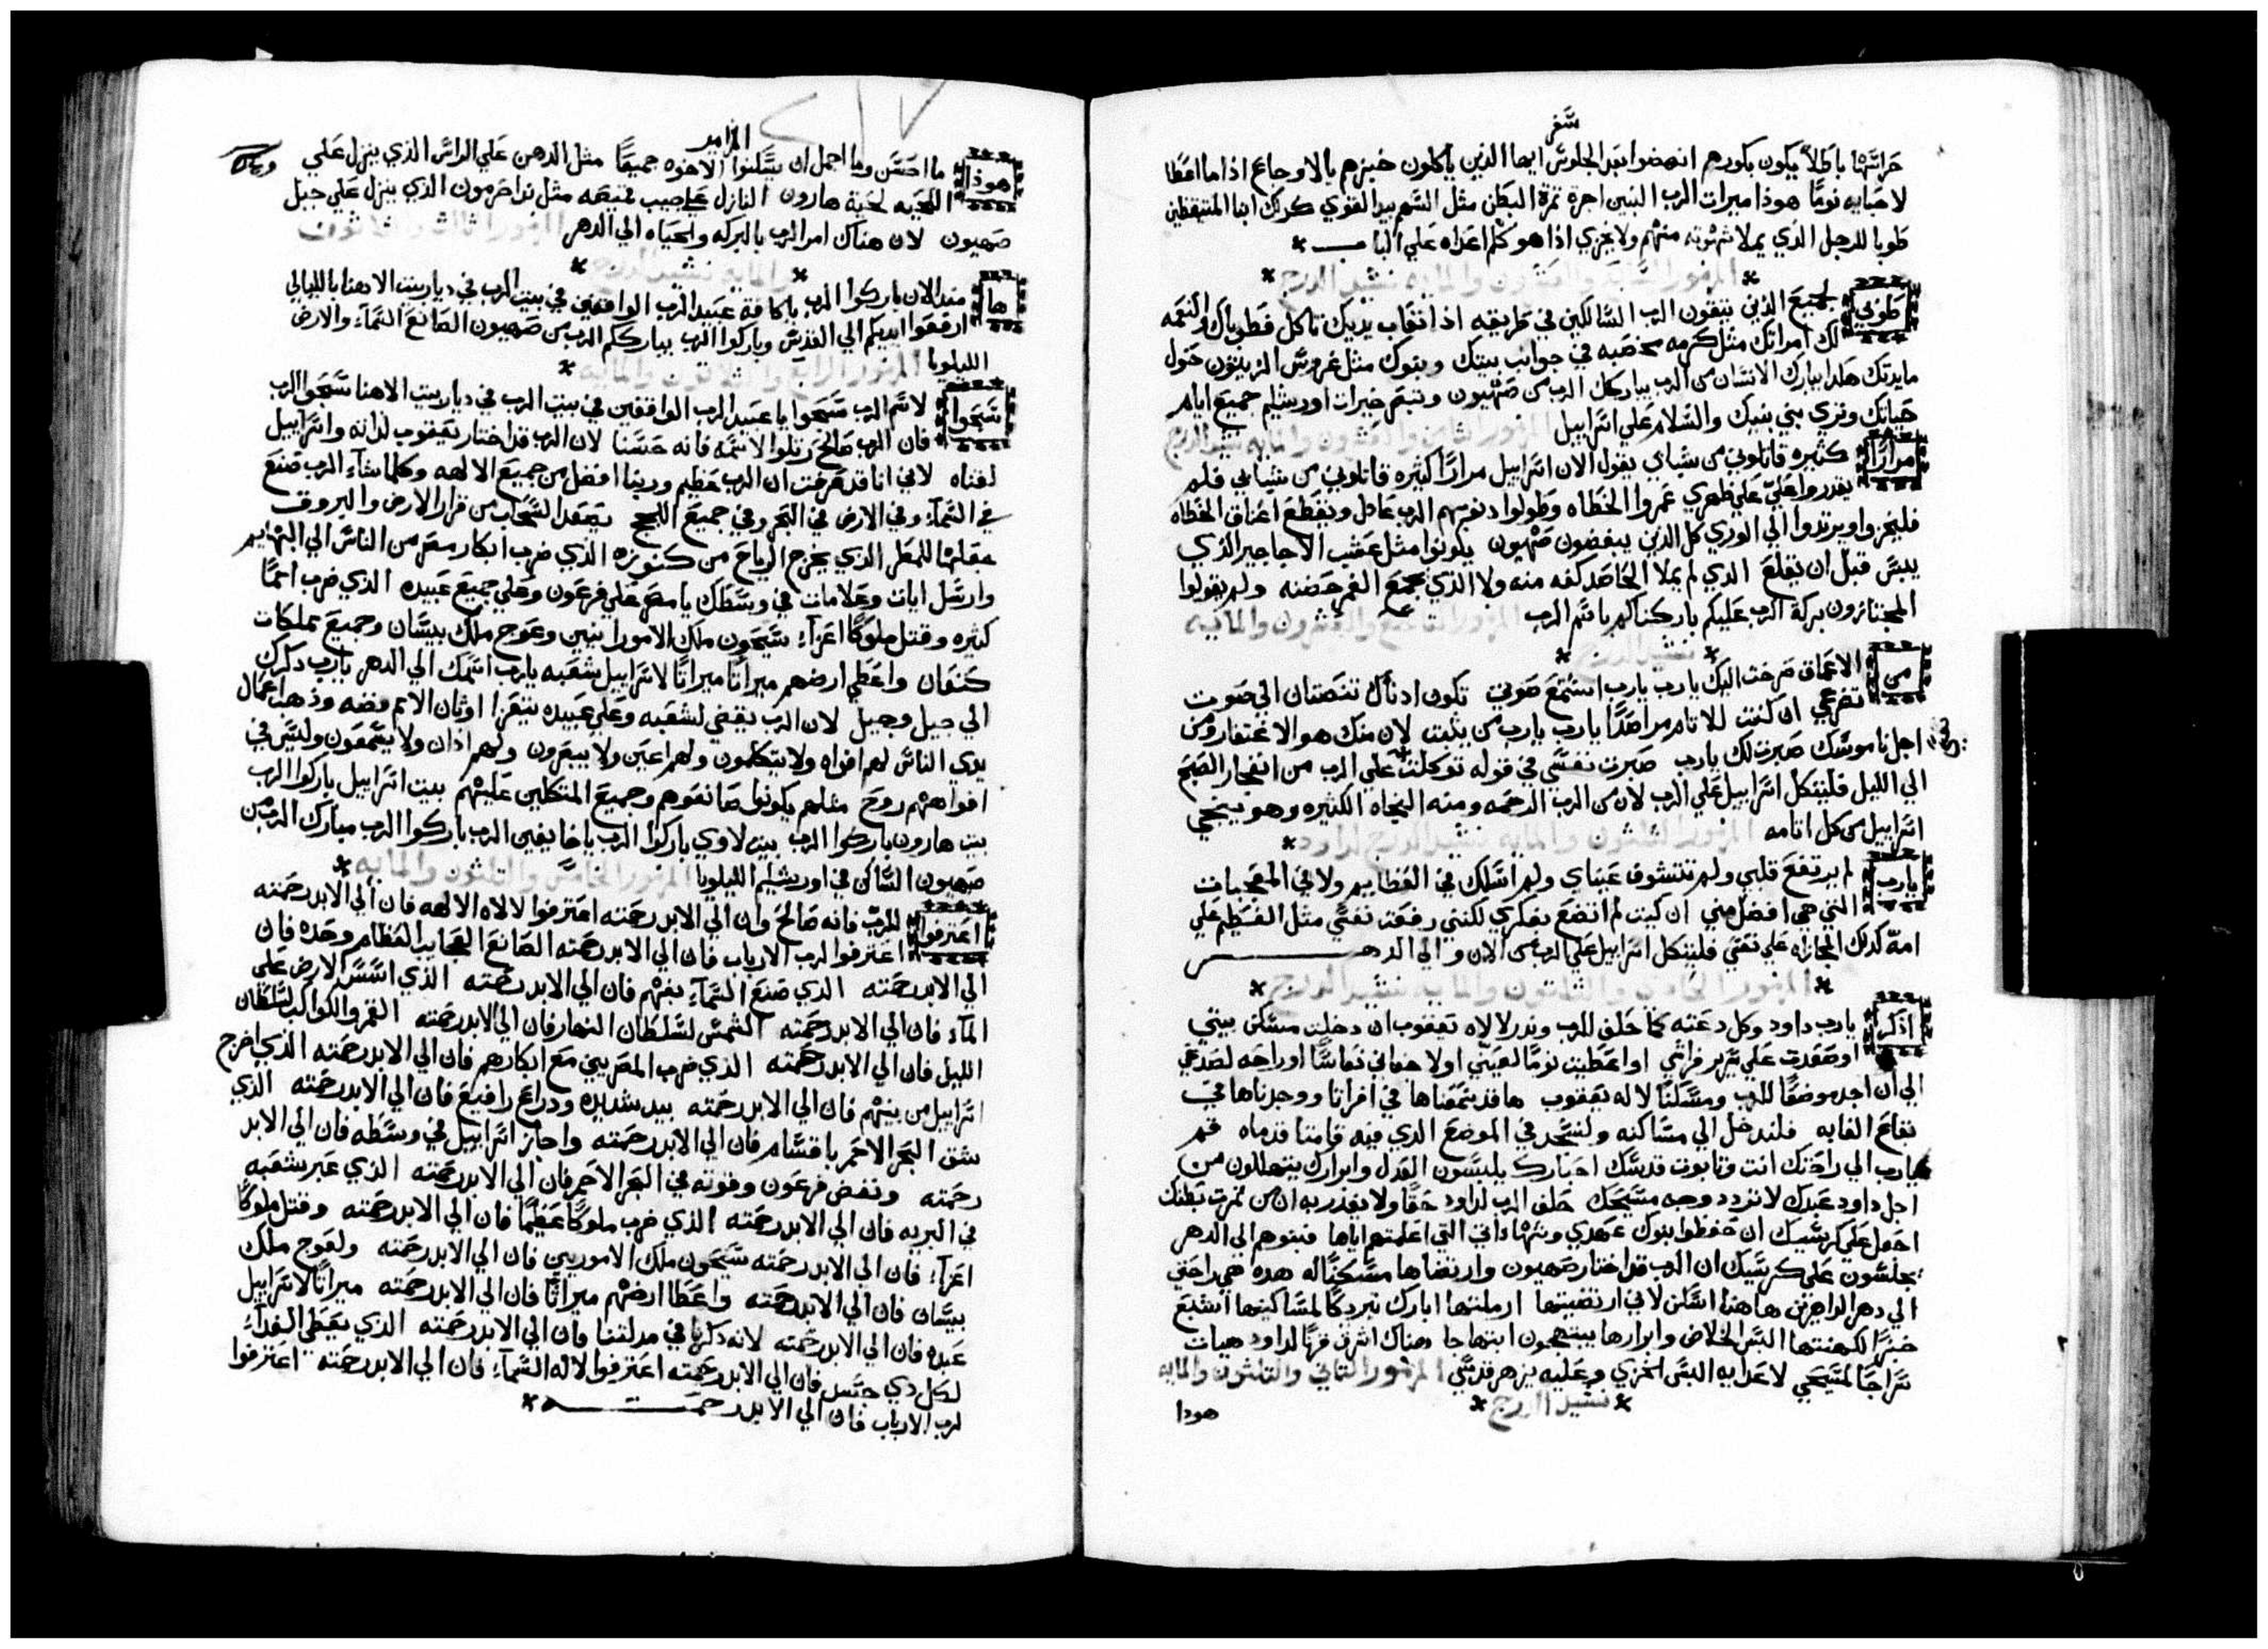 سفر
حراستها باطلاً يكون بكورهم انهضوا بعد الجلوس ايها الذين ياكلون خبزهم بالاوجاع اذا ما اعطا
لاحبايه نومًا هوذا ميرات الرب البنين اجرة تمرة البطن مثل السهم بيد القوي كدلك ابنا المتيقظين
طوبا للرجل الذي يملا شهوته منهم ولا يخزي اذا هو كلم اعداه علي الباب
المزمور السابع والعشرون والمايه نشيد الدرج
طوبي لجميع الذين يتقون الرب السالكين في طريقه اذا اتعاب يديك تاكل فطوباك والنعمه
لك امراتك مثل كرمه مخصبه في جوانب بيتك وبنوك مثل غروس الزيتون حول
مايدتك هكدا يبارك الانسان من الرب يباركك الرب من صهيون وتبصر خيرات اورشليم جميع ايام
حياتك وتري بني بنيك والسلام علي اسراييل المزمور الثامن والعشرون والمايه نشيد الدرج
مرارًا كثيره قاتلوني من شبابي يقول الان اسراييل مرارًا كثيره قاتلوني من شبابي فلم
يقدروا عليّ علي ظهري عمروا الخطاه وطولوا دنوبهم الرب عادل ويقطع اعناق الخطاه
فليخزوا ويرتدوا الي الوري كل الذين يبغضون صهيون يكونوا مثل عشب الاجاجير الذي
ييبس قبل ان يقلع الذي لم يملا الحاصد كفه منه ولا الذي يجمع الغمر حضنه ولم يقولوا
المجتازون بركة الرب عليكم باركناكم باسم الرب المزمور التاسع والعشرون والمايه
نشيد الدرج
من الاعماق صرخت اليك يارب يارب استمع صوتي تكون ادناك تنصتان الي صوت
تضرعي ان كنت للاتام مراصدًا يارب يارب من يثبت لان منك هو الاغتفار ومن
اجل ناموسك صبرت لك يارب صبرت نفسي في قوله توكلت علي الرب من انفجار الصبح
الي الليل فليتكل اسراييل علي الرب لان من الرب الرحمه ومنه النجاه الكثيره وهو ينجي
اسراييل من كل اتامه المزمور الثلثون والمايه نشيد الدرج لداود
يارب لم يرتفع قلبي ولم تتشوف عيناي ولم اسلك في العظايم ولا في المعجبات
التي هي افضل مني ان كنت لم اتضع بفكري لكنني رفعت نفسي مثل الفطيم علي
امه كدلك المجازاه علي نفسي فليتكل اسراييل علي الرب من الان والي الدهر
المزمور الحادي والثلثون والمايه نشيد الدرج
اذكر يارب داود وكل دعته كما حلف للرب وندر لالاه يعقوب ان دخلت مسكن بيتي
او صعدت علي سرير فراشي او اعطيت نومًا لعيني اولاجفاني نعاسًا او راحه لصدغي
الي ان اجد موضعًا للرب ومسكنًا لاله يعقوب ها قد سمعناها في افراتا ووجدناها في
بقاع الغابه فلندخل الي مساكنه ولنسجد في الموضع الدي فيه قامتا قدماه قم
يارب الي راحتك انت وتابوت قدسك احبارك يلبسون العدل وابرارك يتهللون من
اجل داود عبدك لا تردد وجه مسيحك حلف الرب لداود حقًا ولا يغدر به ان من تمرت بطنك
اجعل علي كرسيك ان حفظوا بنوك عهدي وشهاداتي التي اعلمتهم اياها فبنوهم الي الدهر
يجلسون علي كرسيك ان الرب قد اختار صهيون وارتضاها مسكنًا له هده هي راحتي
الي دهر الداهرين هاهنا اسكن لاني ارتضيتها ارملتها ابارك تبريكًا لمساكينها اشبع
خبزًا لكهنتها البس الخلاص وابرارها يبتهجون ابتهاجا هناك اشرف قرنًا لداود هيات
سراجًا لمسيحي لاعدايه البس الخزي وعليه يزهر قدسي المزمور الثاني والثلثون والمايه
نشيد الدرج
هودا
المزامير
هوذا ما احسن وما اجمل ان يسكنوا الاخوه جميعًا مثل الدهن علي الراس الذي ينزل علي
اللحيه لحية هارون النازل علي جيب قميصه مثل ندا حرمون الذي ينزل علي جبل
صهيون لان هناك امر الرب بالبركه والحياه الي الدهر المزمور الثالث والثلاثون
والمايه نشيد الدرج
ها منذ الان باركوا الرب يا كافة عبيد الرب الواقفين في بيت الرب في ديار بيت الاهنا بالليالي
ارفعوا ايديكم الي القدس وباركوا الرب يبارككم الرب من صهيون الصانع السماء والارض
الليلويا المزمور الرابع والثلاثون والمايه
سبحوا لاسم الرب سبحوا يا عبيد الرب الواقفين في بيت الرب في ديار بيت الاهنا سبحوا الرب
فان الرب صالح رتلوا لاسمه فانه حسنا لان الرب قد اختار يعقوب لداته واسراييل
لقناه لاني انا قد عرفت ان الرب عظيم وربنا افضل من جميع الالهه وكلما شاء الرب صنع
في السماء وفي الارض في البحر وفي جميع اللجج يصعد السحاب من قرار الارض والبروق
عملها للمطر الذي يخرج الرياح من كنوزه الذي ضرب ابكار مصر من الناس الي البهايم
وارسل ايات وعلامات في وسطك يا مصر علي فرعون وعلي جميع عبيده الذي ضرب امما
كثيره وقتل ملوكًا اعزاء سيحون ملك الامورانيين وعوج ملك بيسان وجميع مملكات
كنعان واعطي ارضهم ميراتًا ميراتًا لاسراييل شعبه يارب اسمك الي الدهر يارب دكرك
الي جيل وجيل لان الرب يقضي لشعبه وعلي عبيده يتعزا اوثان الامم فضه وذهب اعمال
يدي الناس لهم افواه ولا يتكلمون ولهم اعين ولا يبصرون ولهم اذان ولا يسمعون وليس في
افواههم روح مثلهم يكونوا صانعوهم وجميع المتكلين عليهم بيت اسراييل باركوا الرب
بيت هارون باركوا الرب بيت لاوي باركوا الرب يا خايفين الرب باركوا الرب مبارك الرب من
صهيون الساكن في اورشليم الليلويا المزمور الخامس والثلثون والمايه
اعترفوا للرب فانه صالح وان الي الابد رحمته اعترفوا لالاه الالهه فان الي الابد رحمته
اعترفوا لرب الارباب فان الي الابد رحمته الصانع العجايب العظام وحده فان
الي الابد رحمته الدي صنع السماء بفهم فان الي الابد رحمته الذي اسس الارض علي
الماء فان الي الابد رحمته الشمس لسلطان النهار فان الي الابد رحمته القمر والكواكب لسلطان
الليل فان الي الابد رحمته الذي ضرب المصريين مع ابكارهم فان الي الابد رحمته الذي اخرج
اسراييل من بينهم فان الي الابد رحمته بيد شديده ودراع رافيع فان الي الابد رحمته الذي
شق البحر الاحمر باقسام فان الي الابد رحمته واجاز اسراييل في وسطه فان الي الابد
رحمته ونفض فرعون وقوته في البحر الاحمر فان الي الابد رحمته الذي عبر شعبه
في البريه فان الي الابد رحمته الذي ضرب ملوكًا عظمًا فان الي الابد رحمته وقتل ملوكًا
اعزاء فان الي الابد رحمته سيحون ملك الاموريين فان الي الابد رحمته ولعوج ملك
بيسان فان الي الابد رحمته واعطا ارضهم ميراتًا فان الي الابد رحمته ميراتًا لاسراييل
عبده فان الي الابد رحمته لانه دكرنا في مدلتنا فان الي الابد رحمته الذي يعطي الغداء
لكل دي جسد فان الي الابد رحمته اعترفوا لاله السماء فان الي الابد رحمته اعترفوا
لرب الارباب فان الي الابد رحمته